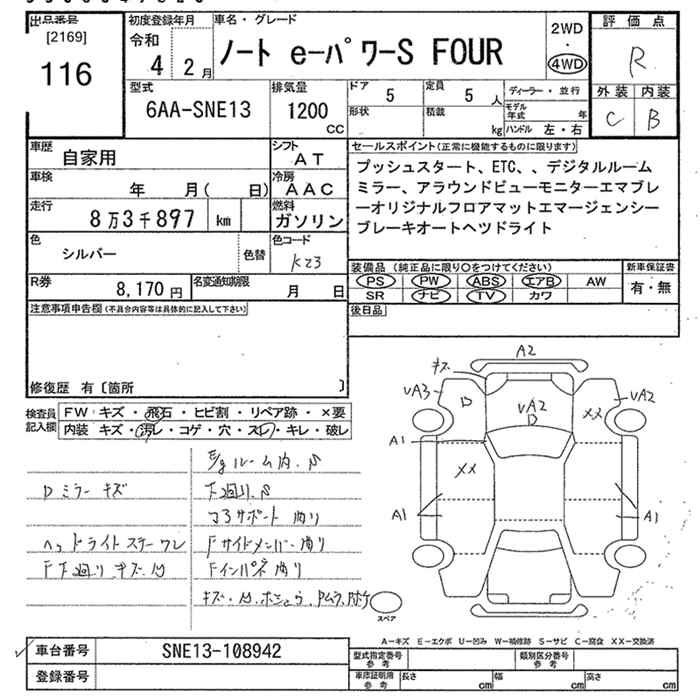 出品番号
[2169]
116
初度登録年月
令和
4 2月
車名・グレード
ノート e-パワーS FOUR
2WD
・
4WD
評価点
R
外装 内装
C B
型式
6AA-SNE13
排気量
1200
cc
ドア
5
定員
5 人
形状
積載
kg
ディーラー・並行
モデル年式 年
ハンドル 左・右
車歴
自家用
シフト
AT
車検
年 月( 日)
冷房
AAC
走行
8万3千897 km
燃料
ガソリン
色
シルバー
色替
色コード
K23
R券
8,170 円
名変通知期限
月 日
セールスポイント(正常に機能するものに限ります)
プッシュスタート、ETC、、デジタルルーム
ミラー、アラウンドビューモニターエマブレ
ーオリジナルフロアマットエマージェンシー
ブレーキオートヘツドライト
装備品 (純正品に限り○をつけてください)
PS PW ABS エアB AW
SR ナビ TV カワ
新車保証書
有・無
後日品
注意事項申告欄(不具合内容等は具体的に記入して下さい)
修復歴 有〔箇所 〕
検査員
記入欄
FW キズ・飛石・ヒビ割・リペア跡・×要
内装 キズ・汚レ・コゲ・穴・スレ・キレ・破レ
E/gルーム内.S
Dミラーキズ
下廻り.S
コアサポート曲り
ヘッドライトステーワレ
Fサイドメンバー曲り
F下廻りキズ.凹
Fインパネ曲り
キズ
A2
UA3
D
UA2
D
××
UA2
A1
××
A1
A1
スペア
A-キズ E-エクボ U-凹み W-補修跡 S-サビ C-腐食 XX-交換済
車台番号
SNE13-108942
登録番号
型式指定番号
参考
類別区分番号
参考
車庫証明用
参考
長さ
cm
幅
cm
高さ
cm